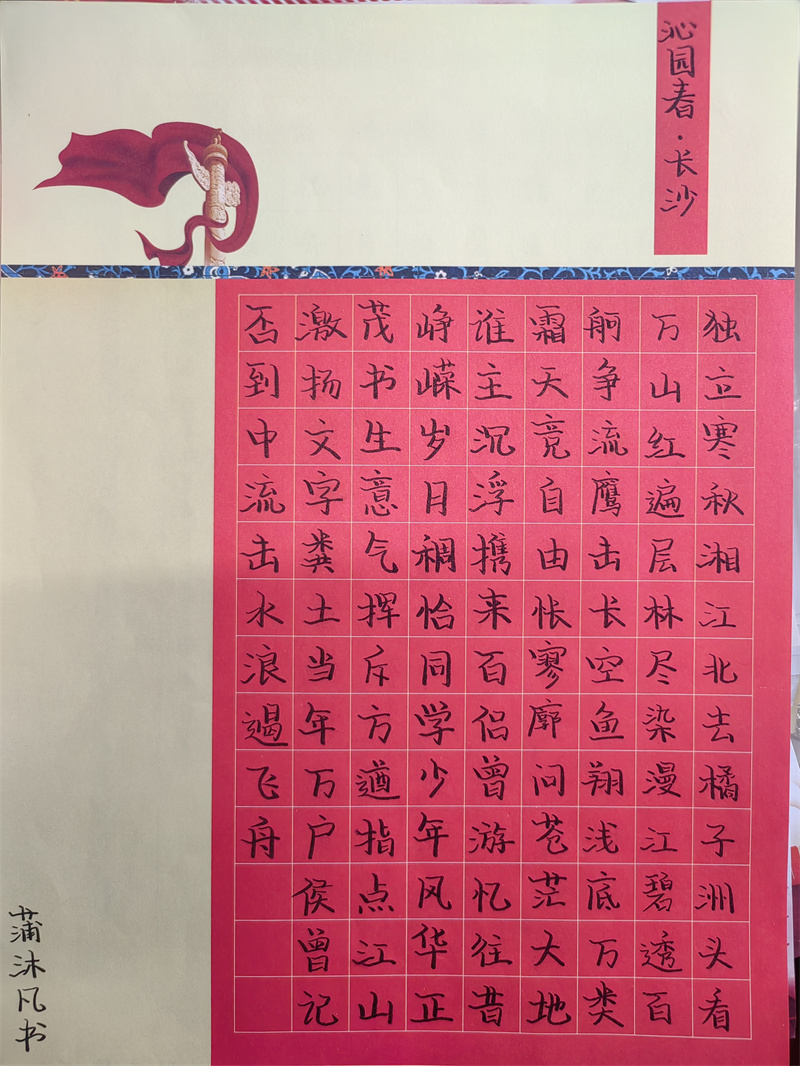 沁园春·长沙
独立寒秋湘江北去橘子洲头看
万山红遍层林尽染漫江碧透百
舸争流鹰击长空鱼翔浅底万类
霜天竞自由怅寥廓问苍茫大地
谁主沉浮携来百侣曾游忆往昔
峥嵘岁月稠恰同学少年风华正
茂书生意气挥斥方遒指点江山
激扬文字粪土当年万户侯曾记
否到中流击水浪遏飞舟
蒲沐凡书